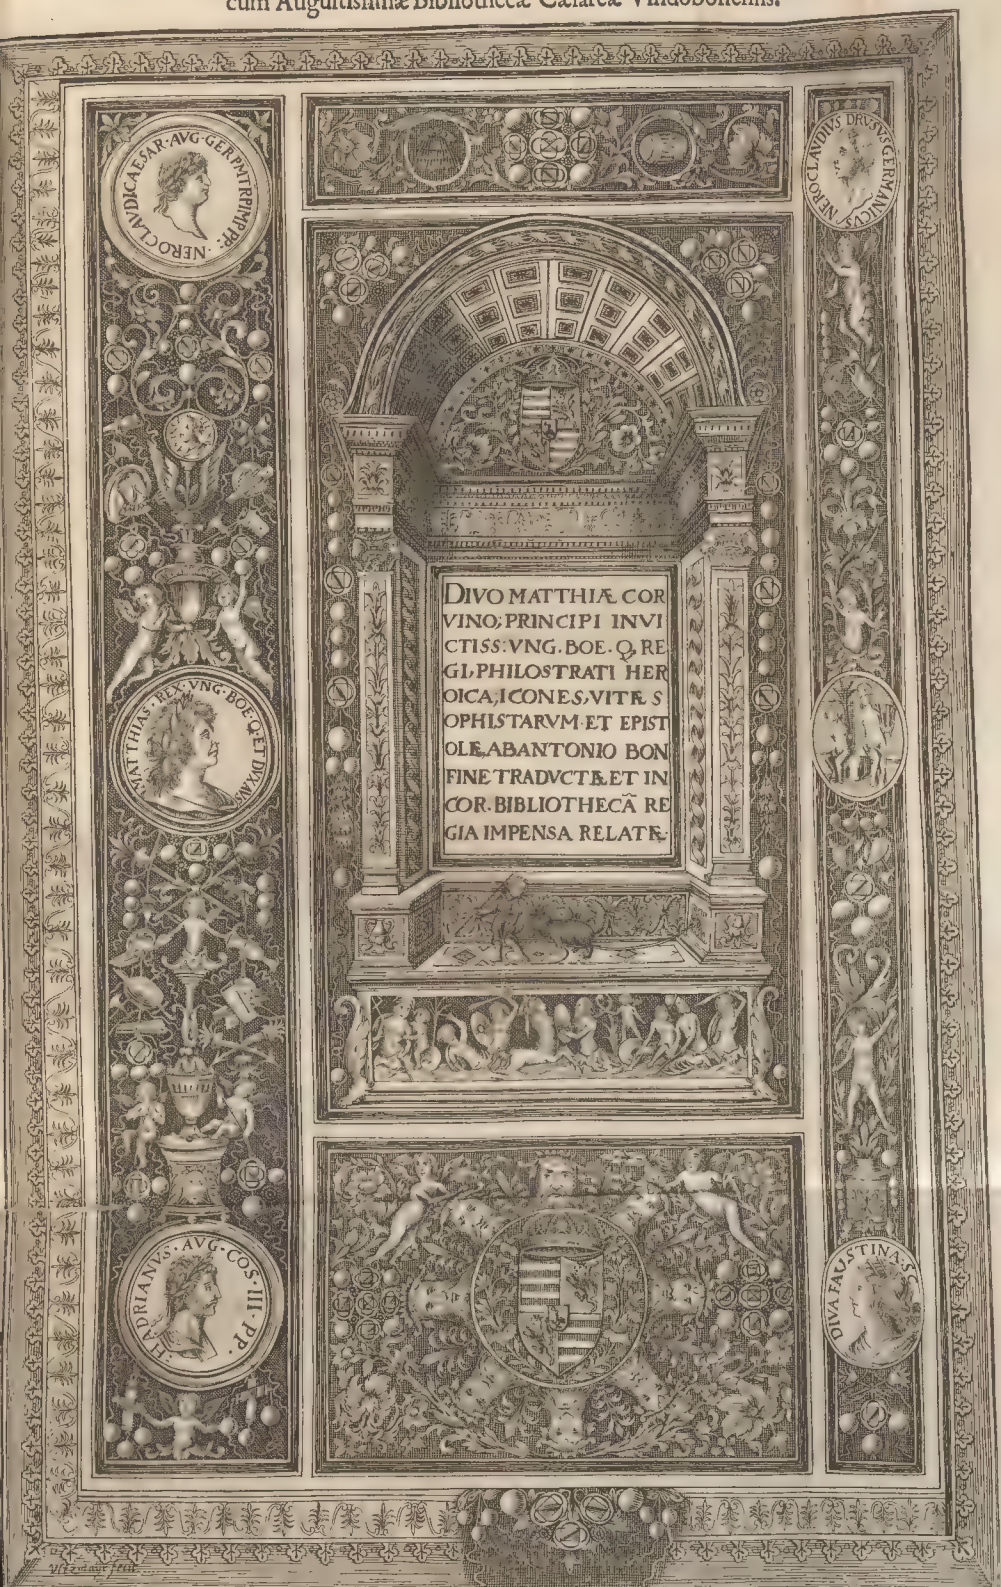 cum Augustissimæ Bibliothecæ Cæsareæ Vindobonensis.
NERO CLAVDI CAESAR·AVG·GER PM TRP IMP PP·
NERO CLAVDIVS DRVSVS GERMANICVS
DIVO MATTHIÆ COR
VINO; PRINCIPI INVI
CTISS: VNG. BOE. Q, RE
GI, PHILOSTRATI HER
OICA, ICONES, VITÆ S
OPHISTARVM·ET EPIST
OLÆ, AB ANTONIO BON
FINE TRADVCTÆ ET IN
COR. BIBLIOTHECÃ RE
GIA IMPENSA RELATÆ·
MATTHIAS·REX·VNG·BOE·Q·ET DVX AVS
HADRIANVS·AVG·COS·III·PP·
DIVA FAUSTINA·S C